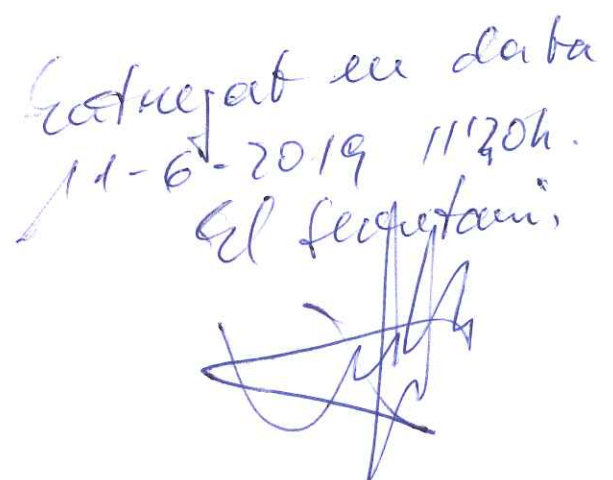 Entregat en data
11-6-2019 11'20h.
El Secretari,